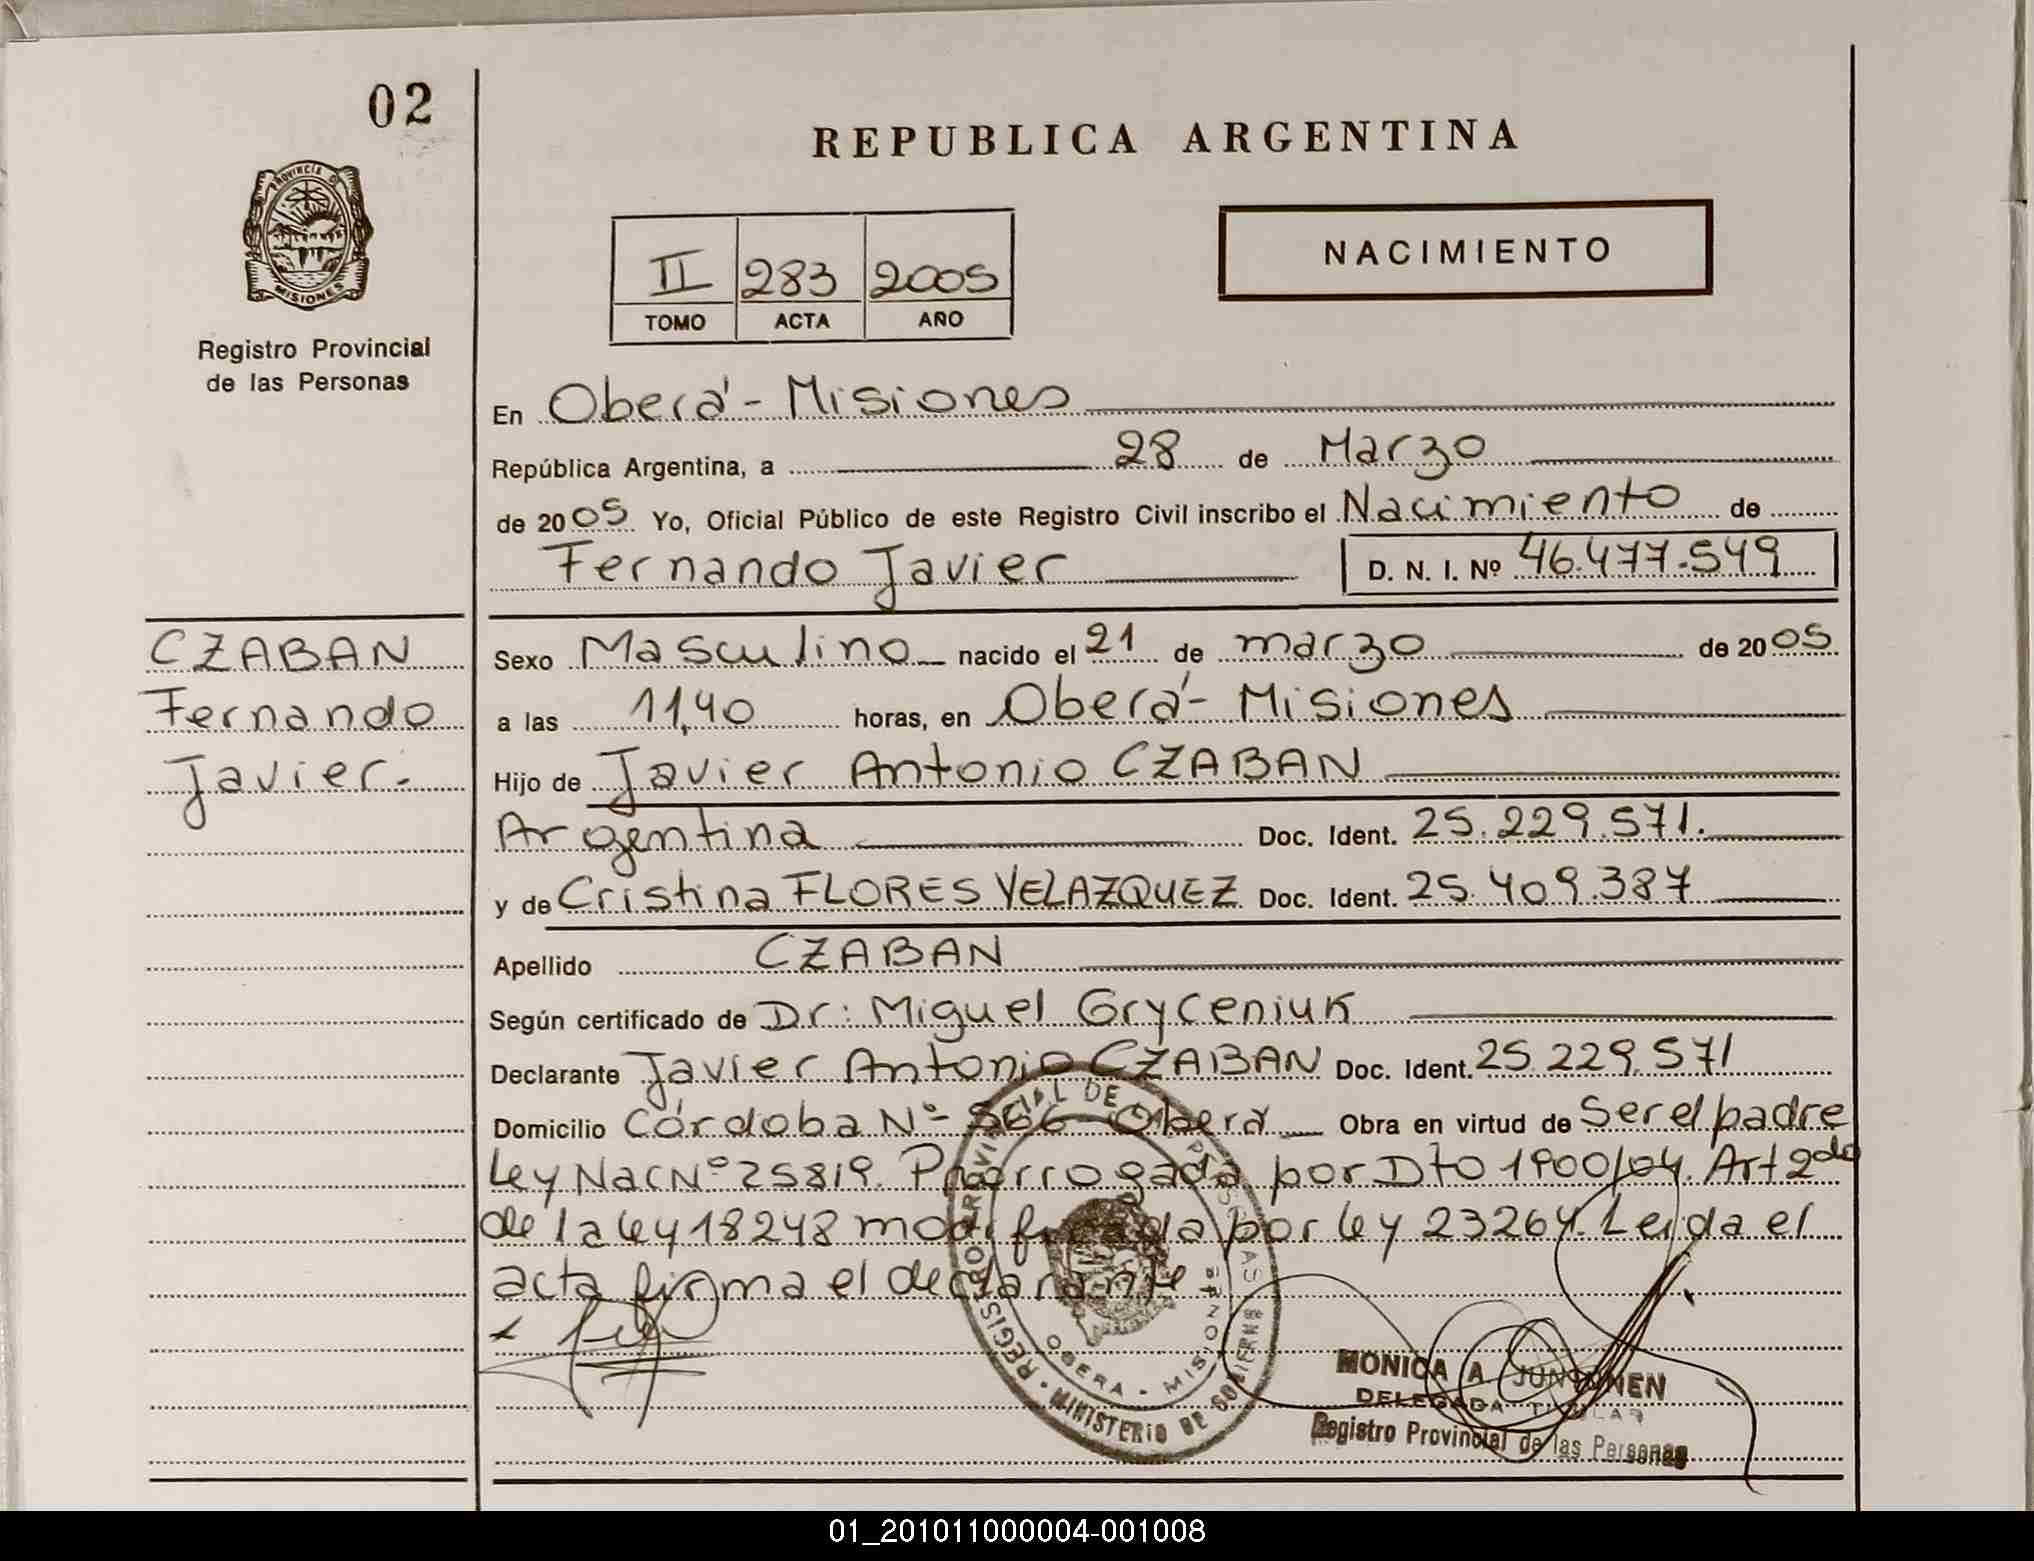 02
REPUBLICA ARGENTINA
PROVINCIA D
MISIONES
Registro Provincial
de las Personas
II 283 2005
TOMO ACTA AÑO
NACIMIENTO
En Oberá - Misiones
República Argentina, a 28 de Marzo
de 2005. Yo, Oficial Público de este Registro Civil inscribo el Nacimiento de
Fernando Javier D. N. I. Nº 46.477.549
CZABAN
Fernando
Javier.-
Sexo Masculino nacido el 21 de marzo de 2005
a las 11,40 horas, en Oberá - Misiones
Hijo de Javier Antonio CZABAN
Argentina Doc. Ident. 25.229.571.
y de Cristina FLORES VELAZQUEZ Doc. Ident. 25.409.387
Apellido CZABAN
Según certificado de Dr: Miguel Gryceniuk
Declarante Javier Antonio CZABAN Doc. Ident. 25.229.571
Domicilio Córdoba Nº 566 Oberá Obra en virtud de Ser el padre
Ley Nac Nº 25819. Prorrogada por Dto 1900/04. Art 2do
de la ley 18248 modificada por ley 23264. Leida el
acta firma el declarante.-
REGISTRO PROVINCIAL DE LAS PERSONAS
MINISTERIO DE GOBIERNO
OBERA - MISIONES
MONICA A.
DELEGADA TITULAR
Registro Provincial de las Personas
01_201011000004-001008